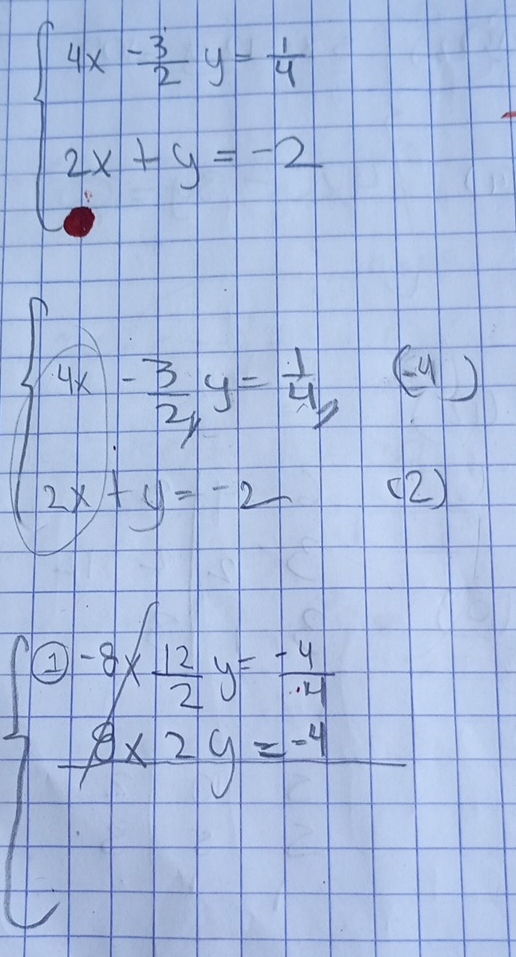 4x - 3/2 y = 1/4
2x + y = -2
4x - 3/2 y = 1/4 (-4)
2x + y = -2 (2)
① -8x 12/2 y = -4/4
8x 2y = -4